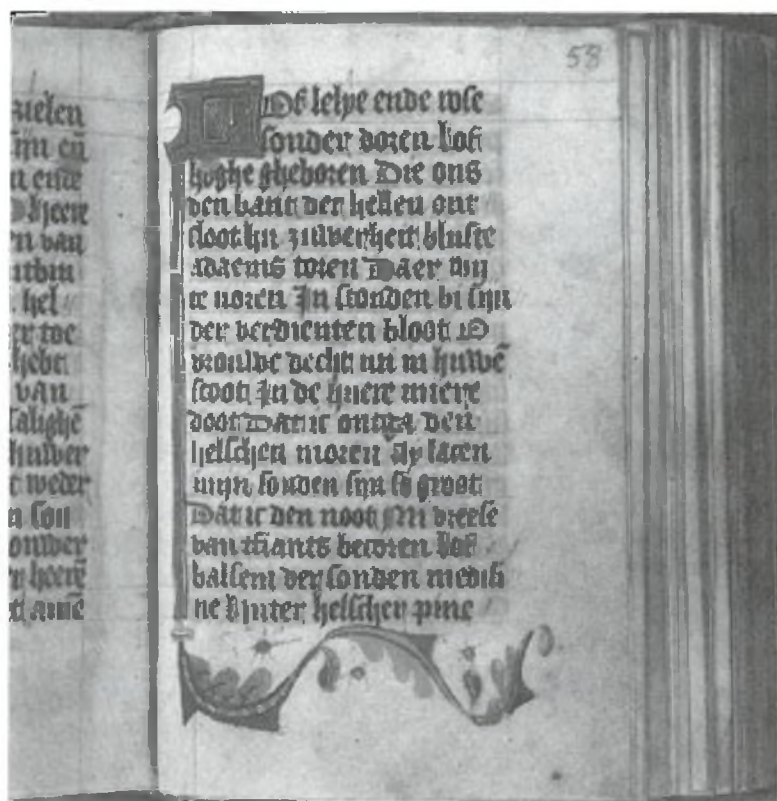 58
zielen
sijn eñ
n ende
heere
en van
hel
er toe
hebt
van
salighe
huwer
t weder
n son
onwer
r heerē
t amē
Lof lelye ende rose
sonder doren Lof
hoghe gheboren Die ons
den bant der hellen ont
sloot Hu zuverheit bluste
adaems toren Daer wij
te noren In stonden bi sijn
der verdienten bloot O
vrouwe dect mi in huwē
scoot In de huere mietre
doot Dat ic ontga den
helschen moren Ay lacen
mijn sonden sijn so groot
Dat ic den noot Mi vreese
van tsiants becoren Lof
balsem der sonden medisi
ne Winter helscher pine